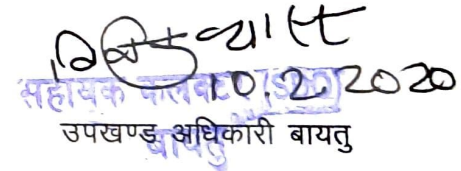 व्यास
10.2.2020
सहायक कलक्टर (SDO)
उपखण्ड अधिकारी बायतु
बायतु